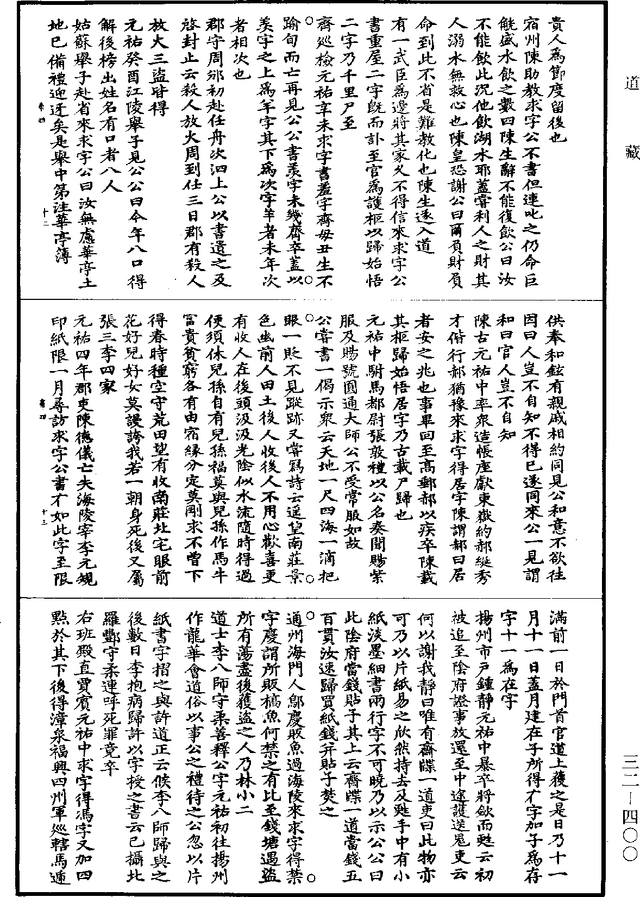 道藏
貴人爲節度留後也
宿州陳助教求字公不書但連叱之仍命巨
觥盛水飲之數四陳生辭不能復飲公曰汝
不能飲此況他飲湖水耶蓋嘗利人之財其
人溺水無救心也陳皇恐謝公曰爾負財負
命到此不省是難教化也陳生遂入道
有一武臣爲邊將其家久不得信來求字公
書重屋二字既而訃至官爲護柩以歸始悟
二字乃千里尸至
齊巡檢元祐辛未求字書羞字齊毋丑生不
踰旬而亡再見公公書羨字未幾齊卒蓋以
羙字之上爲羊字其下爲次字羊者未年次
者相次也
郡守周郊初赴任舟次泗上公以書遺之及
啓封止云殺人放火周到任三日郡有殺人
放火三盜皆得
元祐癸酉江陵舉子見公公曰今年八口得
解後榜出姓名有口者八人
姑蘇舉子赴省來求字公曰汝無慮華亭土
地已備禮迎迓矣是舉中第注華亭簿
卷四
十二
供奉和鉉有親戚相約同見公和意不欲往
因曰人豈不自知不得已遂同來公一見謂
和曰官人豈不自知
陳古元祐中率衆造帳座獻東嶽約郝綖秀
才偕行郝猶豫來求字得居字陳謂郝曰居
者安之兆也事畢回至高郵郝以疾卒陳載
其柩歸始悟居字乃古載尸歸也
元祐中駙馬都尉張敦禮以公名奏聞賜紫
服及賜號圓通大師公不受常服如故
公嘗書一偈示衆云天地一尺四海一滴把
眼一貶不見蹤跡又嘗寫詩云遥望南莊景
色幽前人田土後人收後人不用心歡喜更
有收人在後頭汲汲光陰似水流隨時得過
便須休兒孫自有兒孫福莫與兒孫作馬牛
富貴貧窮各有由宿緣分定莫剛求不曾下
得春時種空守荒田望有收南莊北宅眼前
花好兒好女莫謾誇我若一朝身死後又屬
張三李四家
元祐四年郡吏陳德儀亡失海陵宰李元規
印紙限一月尋訪求字公書㐧如此字至限
卷四
十三
滿前一日於門首官道上獲之是日乃十一
月十一日蓋月建在子所得㐧字加子爲存
字十一爲在字
揚州市戶鍾靜元祐中暴卒將斂而甦云初
被追至陰府證事放還至中途護送鬼吏云
何以謝我靜曰唯有齋牒一道吏曰此物亦
可乃以片紙易之欣然持去及甦手中有小
紙淡墨細書兩行字不可曉乃以示公公曰
此陰府當錢貼子其上云齋牒一道當錢五
百貫汝速歸買紙錢幷貼子焚之
通州海門人鄔慶販魚過海陵來求字得禁
字慶謂所販槁魚何禁之有比至錢塘遇盜
所有蕩盡後獲盜之人乃林小二
道士李八師守柔善釋公字元祐初往揚州
作龍華會道俗以事公之禮待之公忽以片
紙書字摺之與許道正云候李八師歸與之
後數日李抱病歸許以字授之書云已攝北
羅酆守柔連呼死罪竟卒
右班殿直賈賓元祐中求字得馮字又加四
點於其下後得漳泉福興四州軍巡轄馬遞
三二—四〇〇